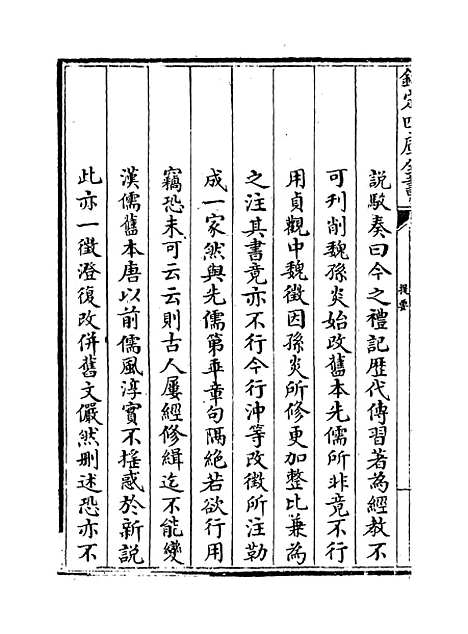 欽定四庫全書
提要
説駁奏曰今之禮記歴代傳習著為經教不
可刋削魏孫炎始改舊本先儒所非竟不行
用貞觀中魏徵因孫炎所修更加整比兼為
之注其書竟亦不行今行沖等改徵所注勒
成一家然與先儒第乖章句隔絶若欲行用
竊恐未可云云則古人屢經修緝迄不能變
漢儒舊本唐以前儒風淳實不揺惑於新説
此亦一徵澄復改併舊文儼然刪述恐亦不